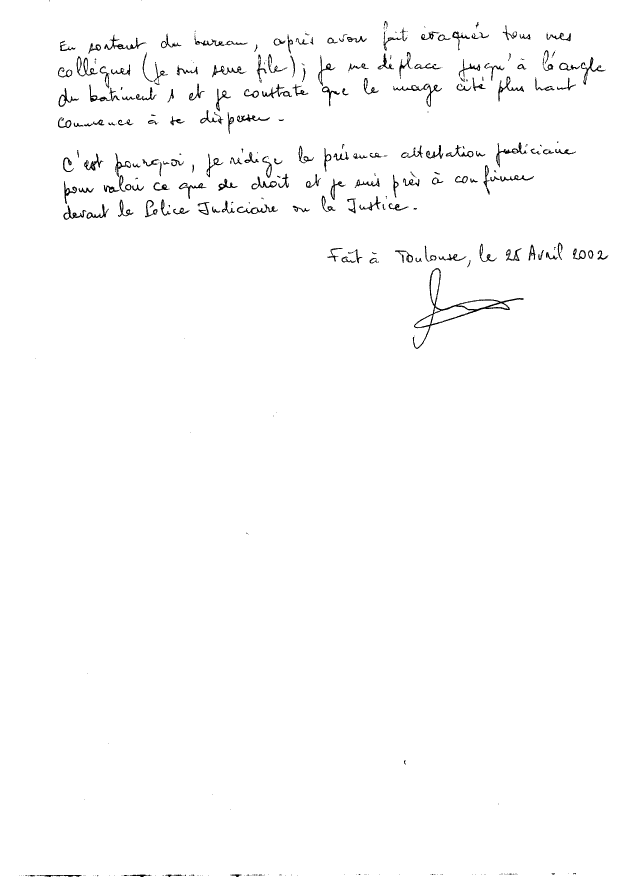 En sortant du bureau, après avoir fait évaquér tous mes
collègues (je suis serre file); je me déplace jusqu'à l'angle
du batiment 1 et je constate que le nuage cité plus haut
commence à se disperser.
C'est pourquoi, je rédige la présence attestation judiciaire
pour valoir ce que de droit et je suis près à confirmer
devant la Police Judiciaire ou la Justice.
Fait à Toulouse, le 25 Avril 2002